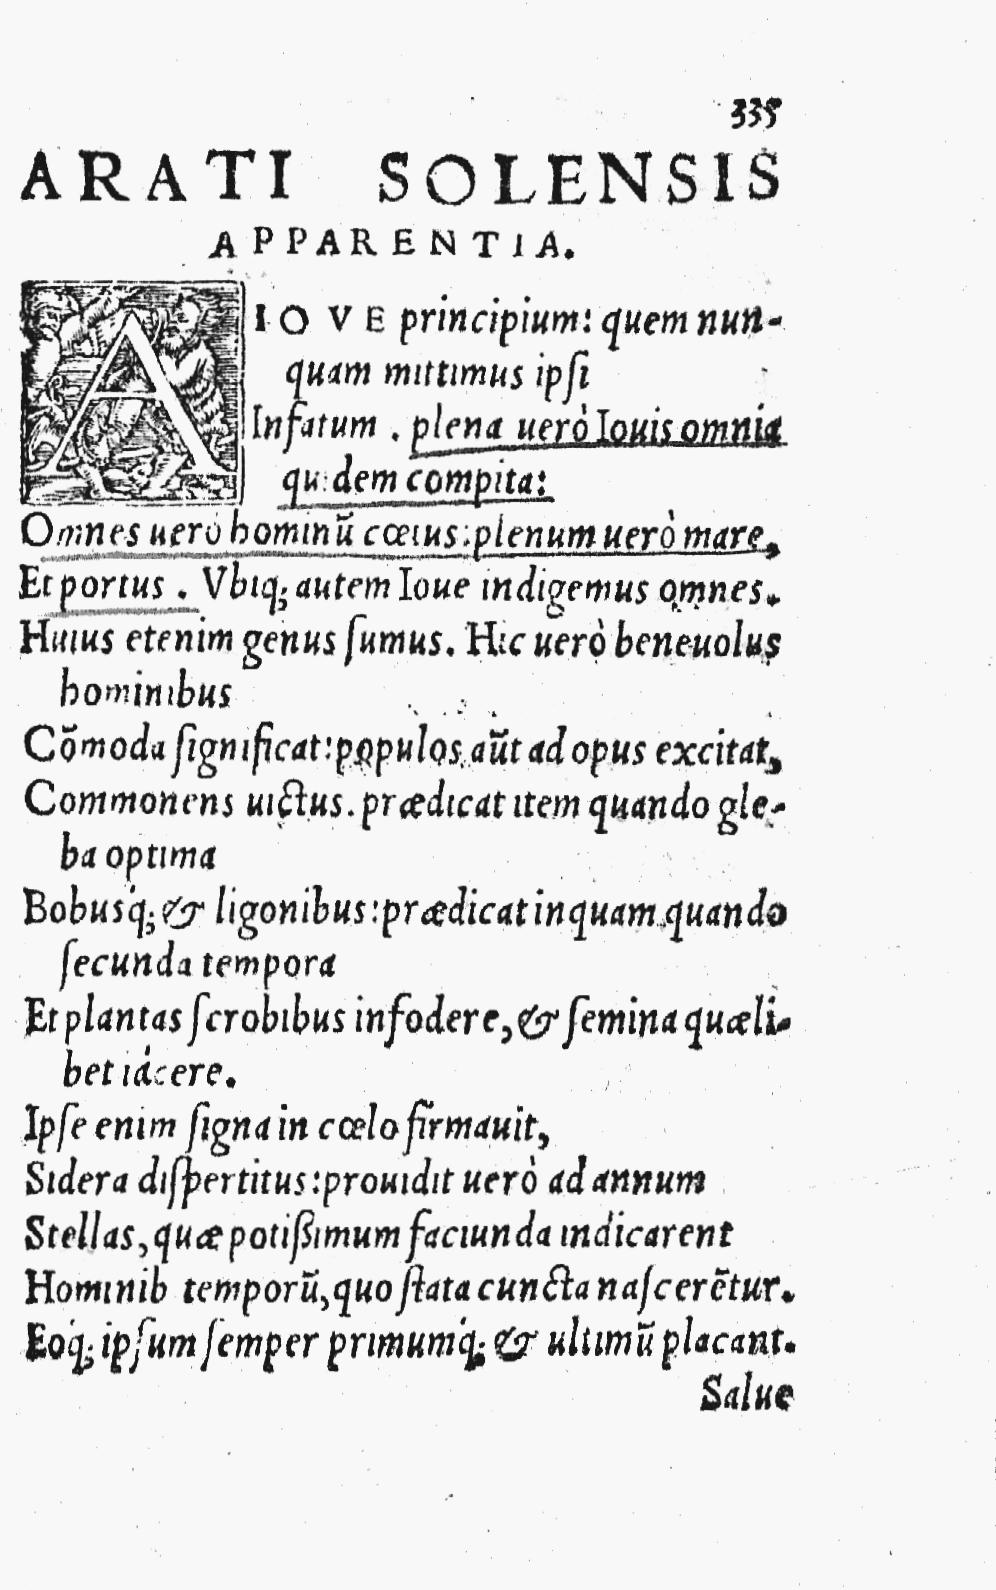 335
ARATI SOLENSIS
APPARENTIA.
A IOVE principium: quem nun-
quam mittimus ipſi
Infatum . plena uerò Iouis omnia
quidem compita:
Omnes uerò hominũ cœtus: plenum uerò mare,
Et portus . Vbiq; autem Ioue indigemus omnes.
Huius etenim genus ſumus. Hic uerò beneuolus
hominibus
Cõmoda ſignificat: populos aũt ad opus excitat,
Commonens uictus. prædicat item quando gle-
ba optima
Bobusq́; & ligonibus: prædicat inquam quando
ſecunda tempora
Et plantas ſcrobibus infodere, & ſemina quæli-
bet iácere.
Ipſe enim ſigna in cœlo firmauit,
Sidera diſpertitus: prouidit uerò ad annum
Stellas, quæ potiſsimum faciunda indicarent
Hominib temporũ, quo ſtata cuncta naſcerẽtur.
Eoq́; ipſum ſemper primumq́; & ultimũ placant.
Salue